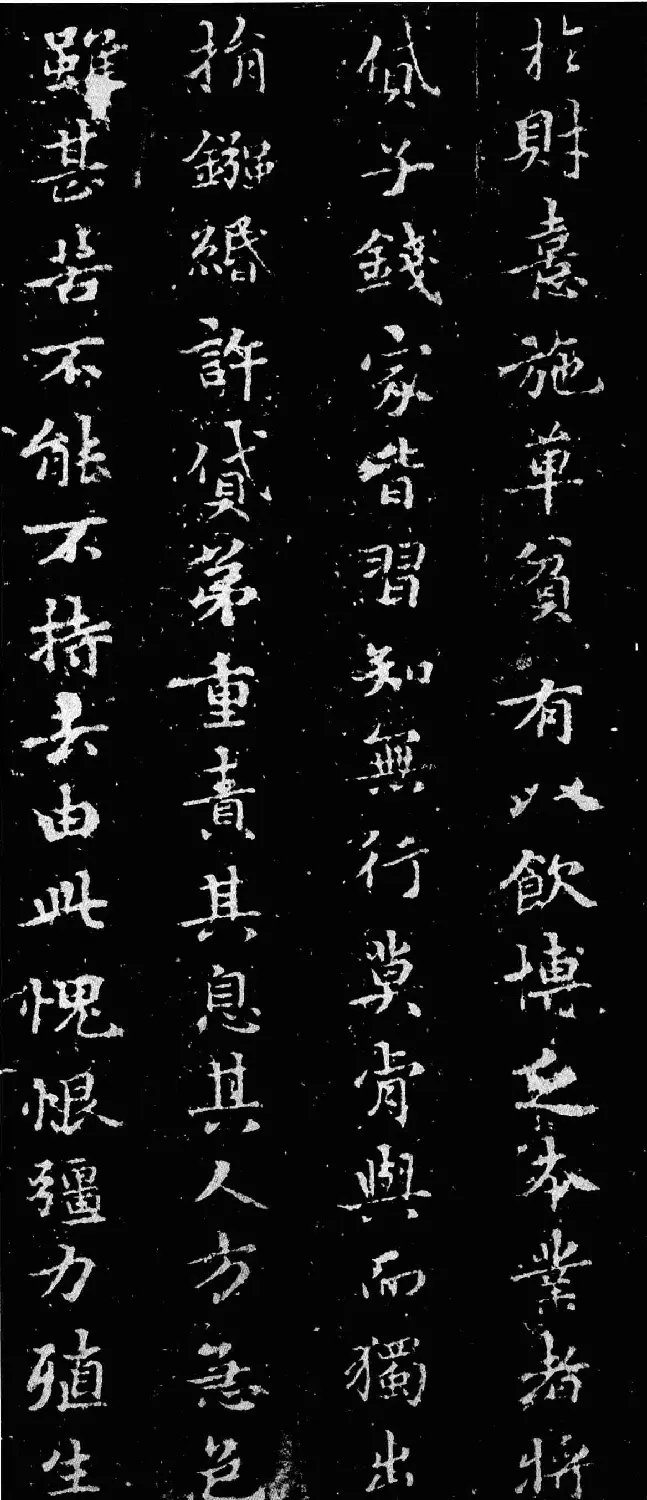 於財憙施單貧有以飲博亡本業者將
貸子錢家皆習知無行莫肯與而獨出
捐鏹緡許貸第重責其息其人方急邑
雖甚苦不能不持去由此愧恨彊力殖生